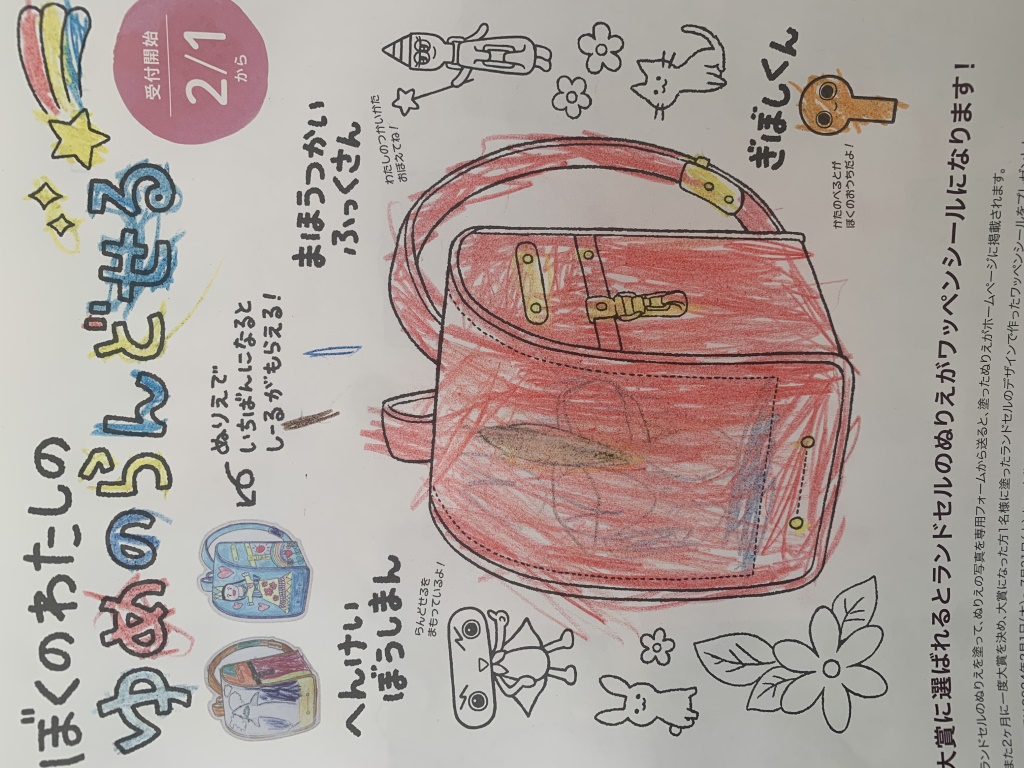 ぼくのわたしの
ゆめのらんどせる
受付開始
2/1
から
ぬりえで
いちばんになると
しーるがもらえる!
まほうつかい
ふっくさん
わたしのつかいかた
おぼえてね!
へんけい
ぼうしまん
らんどせるを
まもっているよ!
ぎぼしくん
かたのべるとが
ぼくのおうちだよ!
大賞に選ばれるとランドセルのぬりえがワッペンシールになります!
ランドセルのぬりえを塗って、ぬりえの写真を専用フォームから送ると、塗ったぬりえがホームページに掲載されます。
また2ヶ月に一度大賞を決め、大賞になった方1名様に塗ったランドセルのデザインで作ったワッペンシールをプレゼント